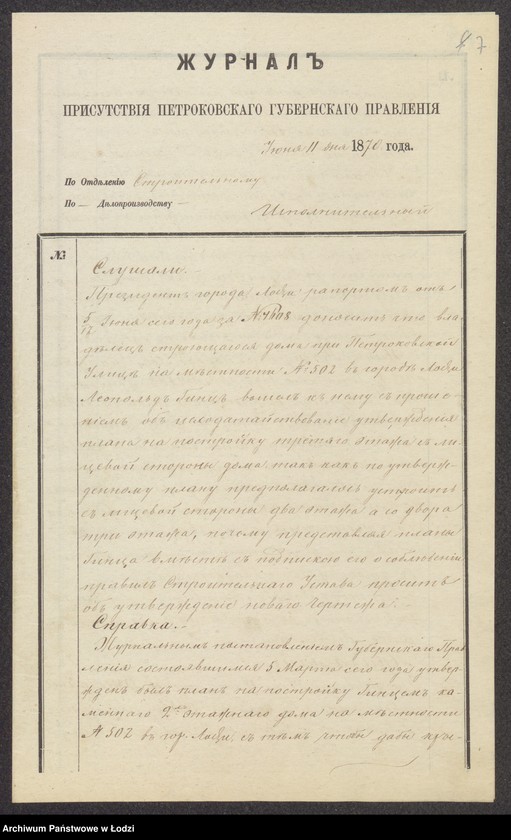 7
ЖУРНАЛЪ
ПРИСУТСТВІЯ ПЕТРОКОВСКАГО ГУБЕРНСКАГО ПРАВЛЕНІЯ
Іюня 11 дня 1870 года.
По Отдѣленію Строительному
По — Дѣлопроизводству —
Исполнительный
№
Слушали
Президентъ города Лодзи рапортомъ отъ
5/17 Іюня сего года за № 7608 доноситъ что вла
дѣлецъ строющагося дома при Петроковской
Улицѣ на мѣстности № 502 въ городѣ Лодзи
Леопольдъ Гинцъ вошелъ къ нему съ проше-
ніемъ объ исходатайствованіе утвержденія
плана на постройку третяго этажа съ ли-
цевой стороны дома такъ какъ по утверж-
денному плану предполагалось устроить
съ лицевой стороны два этажа а со двора
три этажа, почему представляя планы
Гинца вмѣстѣ съ подпискою его о соблюденіи
правилъ Строительнаго Устава проситъ
объ утвержденіе новаго чертежа.
Справка.
Журнальнымъ постановленіемъ Губернскаго Прав
ленія состоявшимся 5 Марта сего года утвер-
жденъ былъ планъ на постройку Гинцемъ ка-
меннаго 2хъ этажнаго дома на мѣстности
№ 502 въ гор. Лодзи, съ тѣмъ чтобы дабы
Archiwum Państwowe w Łodzi